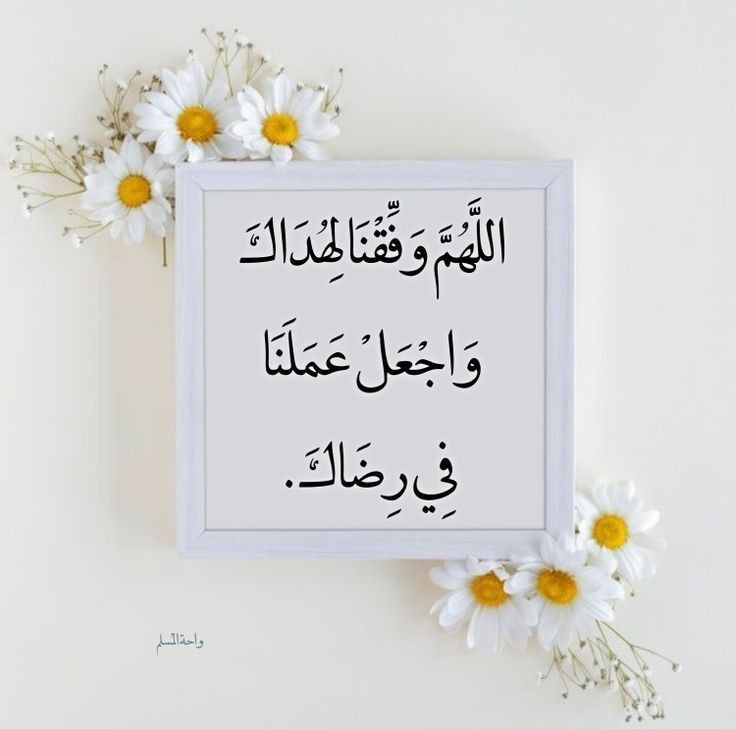 اللَّهُمَّ وَفِّقْنَا لِهُدَاكَ
وَاجْعَلْ عَمَلَنَا
فِي رِضَاكَ.
واحة المسلم